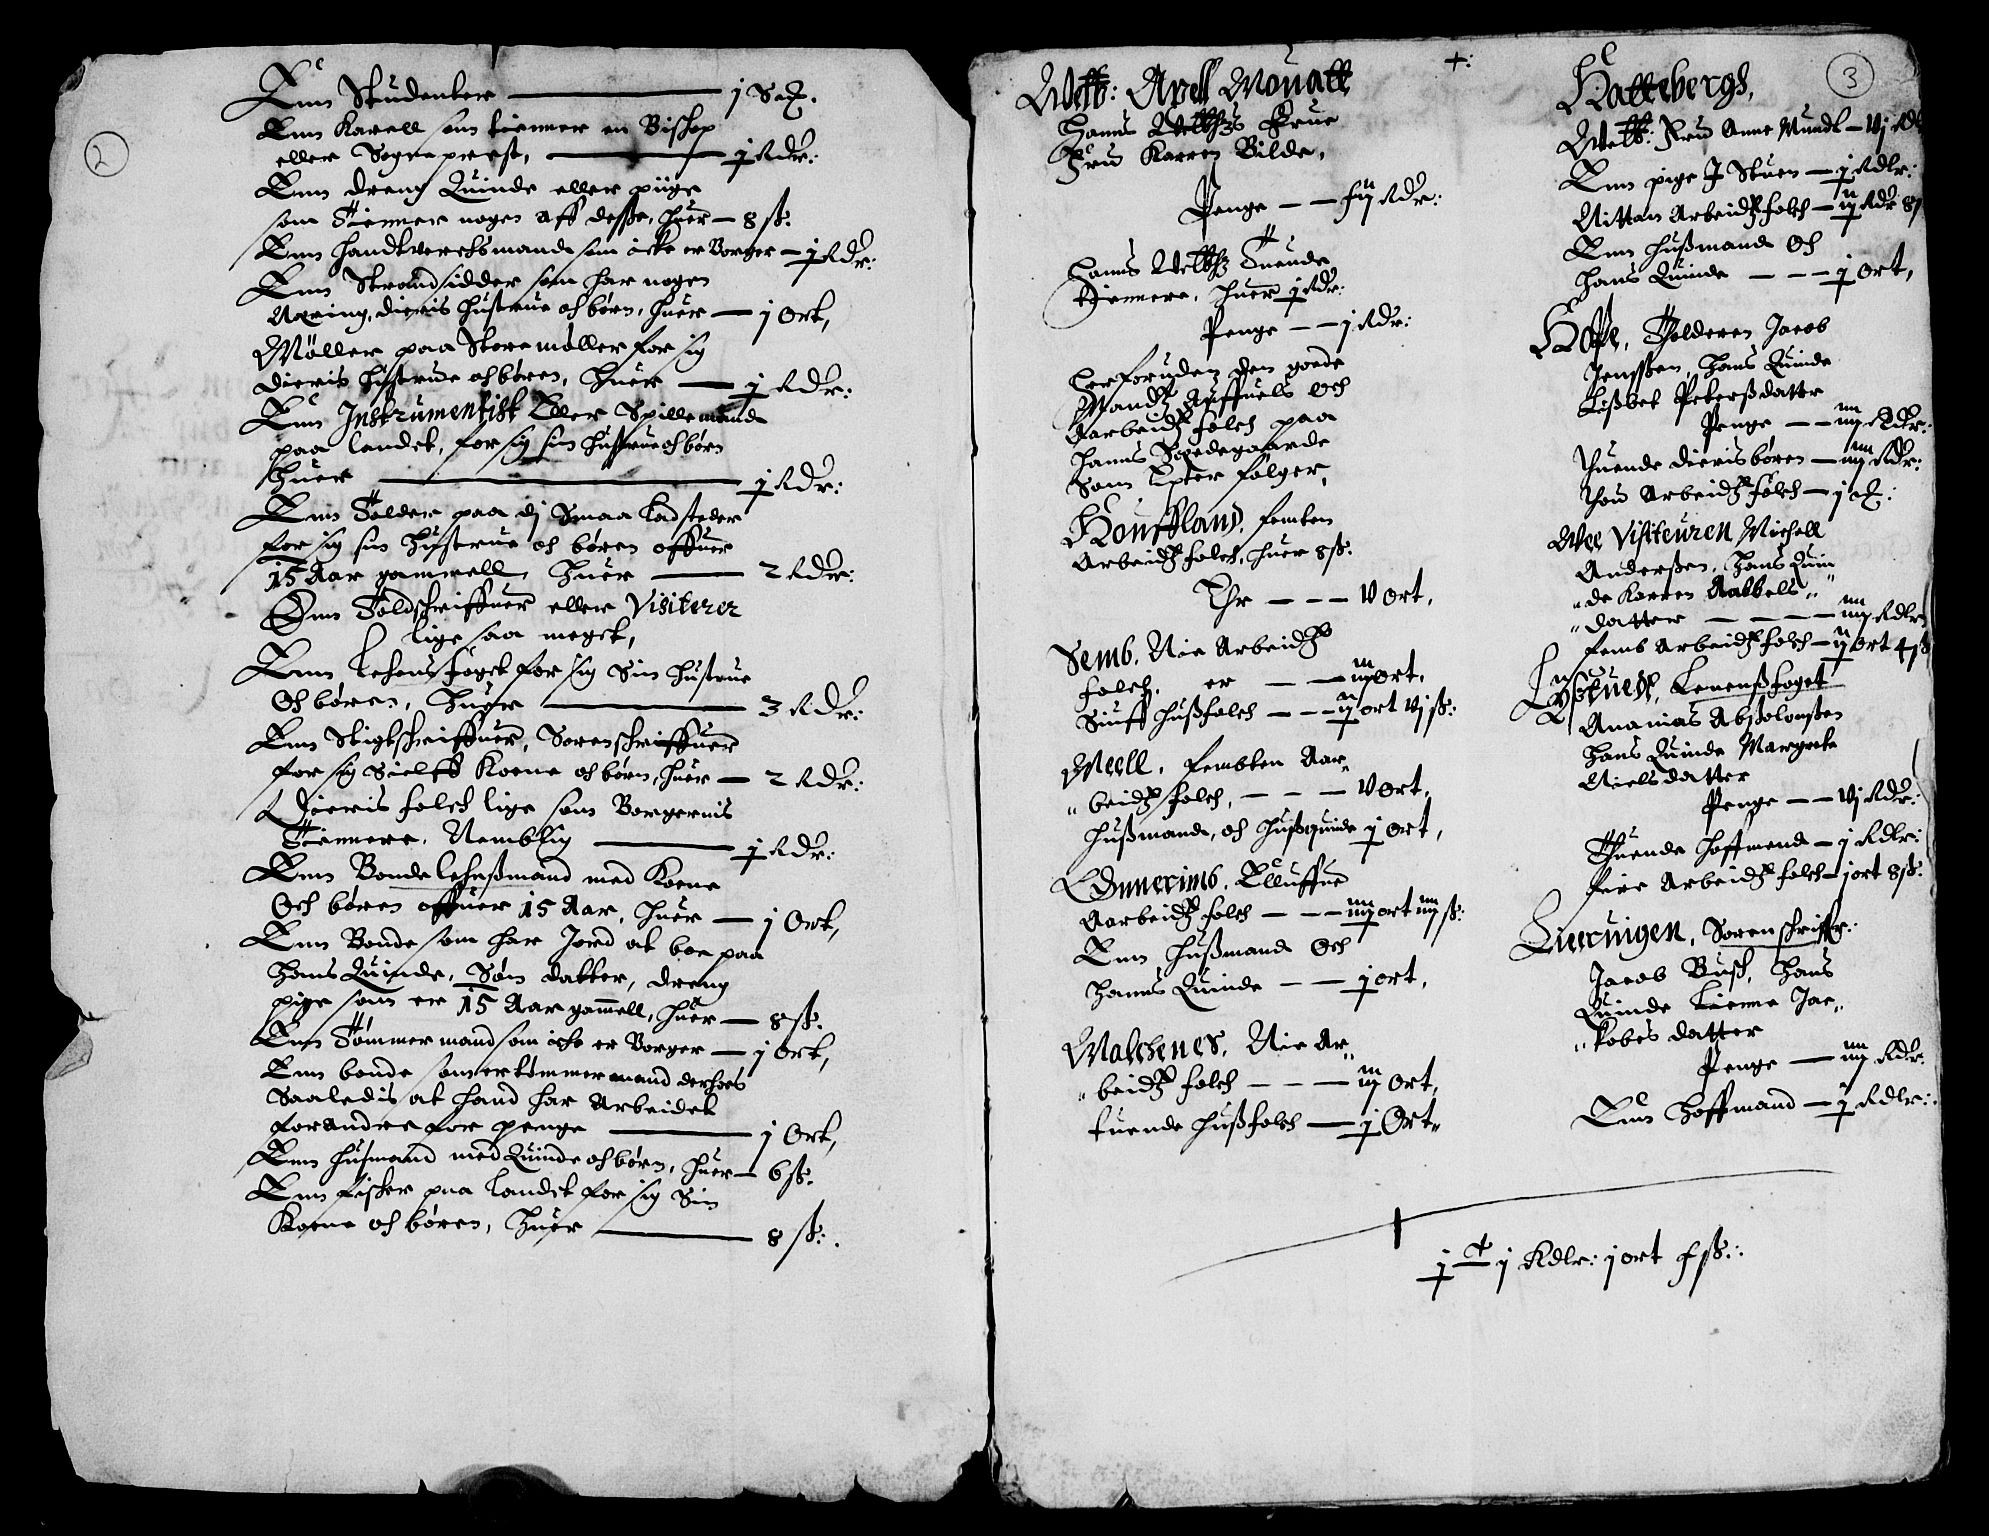 2
Enn Studenter — j Sex.
Enn Karell som tienner en Bishop
eller Sogneprest, — j Rdr:
Enn dreng Quinde eller piige
som Tienner nogen aff desse, huer — 8 sk.
Enn handtverchsmand som icke er Borger — j Rdr:
Enn Strandsidder som har nogen
Næring, dieris hustrue och børn, huer — j Ort,
Møller paa Store møller for sig
dieris hustrue och børen, Huer — j Rdr:
Enn Instrumentist Eller Spillemand
paa landet, for sig sin hustrue och børn
Huer — j Rdr:
Enn Tolder paa dj Smaa ladsteder
for sig sin Hustrue och børen offuer
15 Aar gammell, Huer — 2 Rdr:
Enn Toldschriffuer eller Visiterer
lige saa meget,
Enn Lehens foget for sig Sin Hustrue
Och børen, Huer — 3 Rdr:
Enn Stigtschriffuer, Sorenschriffuer
for sig Sielff Koene och børn, huer — 2 Rdr:
Dieris folch lige som Borgernis
Tiennere, Nemblig — j Rdr:
Enn Bonde lehnßmand med Koene
Och børen offuer 15 Aar, huer — j Ort,
Enn Bonde som har Jord at boe paa
Hans Quinde, Søn datter, dreng
pige som er 15 Aar gammell, huer — 8 sk.
Enn Tømmermand som icke er Borger — j Ort,
Enn bonde som er tømmermand derhoes
Saaledis at hand har Arbeidet
for andre for penge — j Ort,
Enn husmand med Quinde och børn, huer — 6 sk.
Enn fisker paa landet for sig Sin
Koene och børen, Huer — 8 sk:.
+:
3
Welb: Axell Mouatt
Hanns Welbhs Frue
Fru Karren Bilde,
Penge — — Rdr:
Hanns Welbhs Tuende
tiennere, huer j Rdr:
Penge — — j Rdr:
Herforuden den goede
Mandz Auffuels Och
Aarbeidz folch paa
Hanns Sædegaarde
Som Epter følger,
Houffland, femten
Arbeidz folch, huer 8 sk.
Ehr — — — V Ort,
Semb, Nie Arbeidz
folch, er — — iij ort.
Siuff hußfolch — — ij ort vj sk:
Meell, fembten Aar„
„beidz folch, — — — V Ort,
hußmand, och hußquinde j ort,
Elluffue
Aarbeidz folch — — — iij ort iiij sk:
Enn hußmand Och
Hanns Quinde — — j ort,
Malchenes, Nie Ar„
„beidz folch — — — iij ort,
tuende hußfolch — j Ort„
Hattebergs,
Welb: Fru Anne Mundt — vj Rdl
Enn pige J Stuen — j Rdlr:
Nittan Arbeidz folch — ij Rdr 8 s
Enn hußmand Och
hans Quinde — — — j ort,
Tolderen Jacob
Jenssen, Hans Quinde
Lißbet Peterßdatter
Penge — — iiij Rdr:
Thuende dieris børen — iiij Rdr:
Thou Arbeidz folch —
Visiteuren Michell
Anderßen, Hans Quin
„de Karren Aabbels„
„datter — — — — iiij Rdlr
femb Arbeidz folch — ij Ort 4 sk
Lenenßfoget
Ananias Abßolonßen
Hans Quinde Margrete
Nielsdatter
Penge — — vj Rdr:
Thuende hoffmend — j Rdlr:
fire Arbeidz folch — j ort 8 sk:
Sorenschriffr:
Jacob Busch, Hans
Quinde Jac„
„kobs datter
Penge — iiij Rdr:
Enn Hoffmand — j Rdlr:
j Rdlr: j ort sk:.